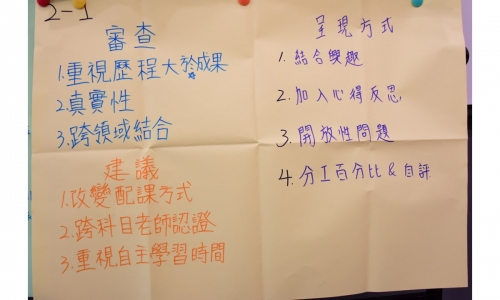 2-1
審查
1.重視歷程大於成果
2.真實性
3.跨領域結合
建議
1.改變配課方式
2.跨科目老師認證
3.重視自主學習時間
呈現方式
1. 結合興趣
2. 加入心得反思
3. 開放性問題
4. 分工百分比 & 自評